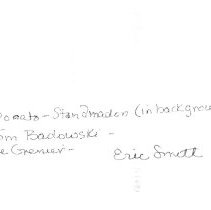 Standmaden (in backgrou
om Badowski -
e Grenier -
Eric Smith